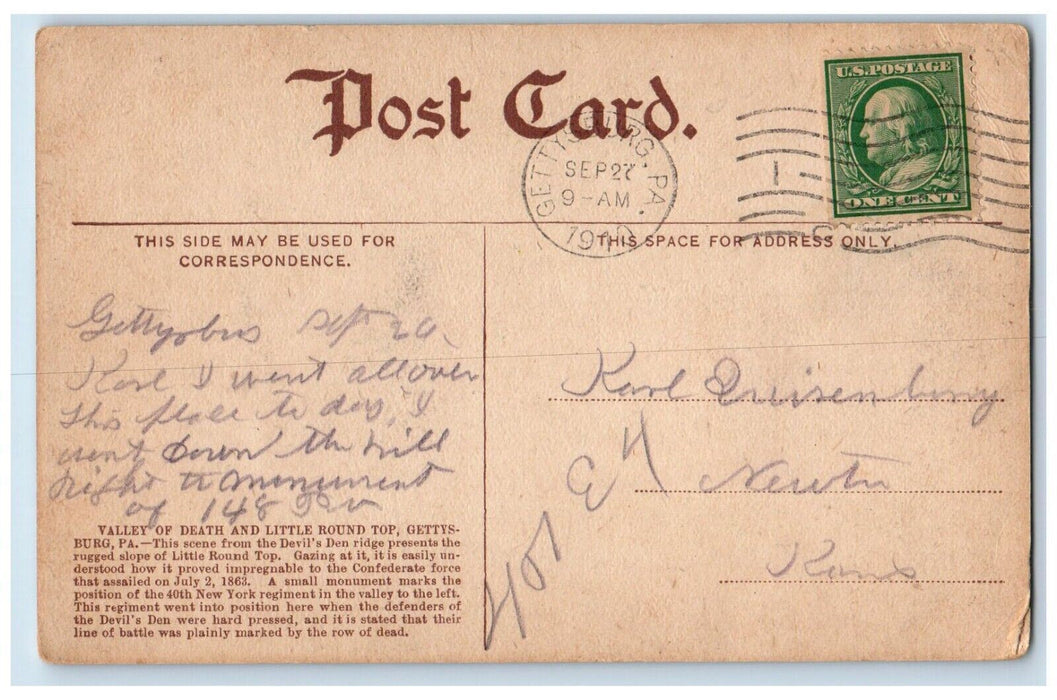 Post Card.
U.S. POSTAGE
ONE CENT
GETTYSBURG, PA.
SEP 27
9-AM
1910
THIS SIDE MAY BE USED FOR
CORRESPONDENCE.
THIS SPACE FOR ADDRESS ONLY.
Sept
Karl I went all over
this place to day, I
went down the hill
right to monument
of 148
Karl Quisenberry
Newton
Kans
407
VALLEY OF DEATH AND LITTLE ROUND TOP, GETTYS-
BURG, PA.—This scene from the Devil's Den ridge presents the
rugged slope of Little Round Top. Gazing at it, it is easily un-
derstood how it proved impregnable to the Confederate force
that assailed on July 2, 1863. A small monument marks the
position of the 40th New York regiment in the valley to the left.
This regiment went into position here when the defenders of
the Devil's Den were hard pressed, and it is stated that their
line of battle was plainly marked by the row of dead.